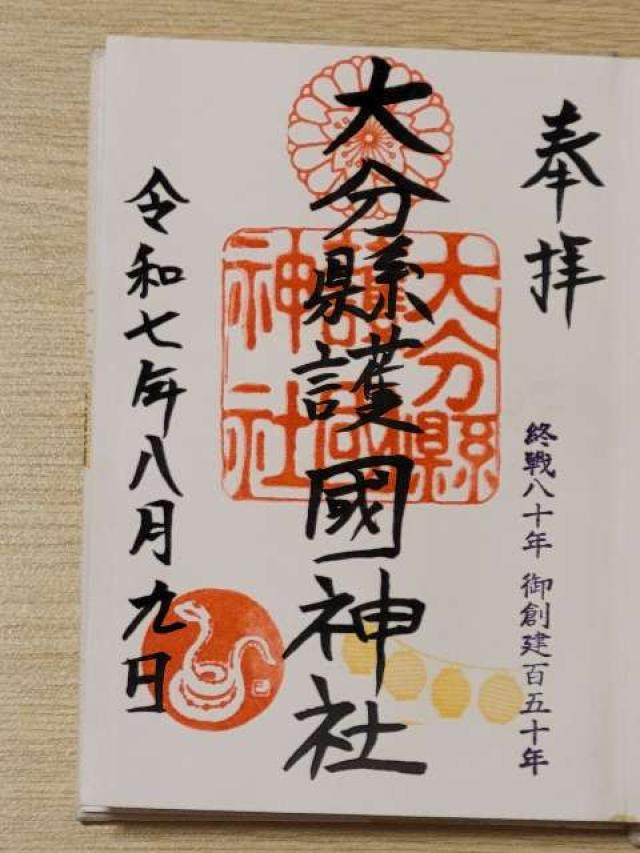 奉拝
終戦八十年 御創建百五十年
大分縣護國神社
大分縣護國神社
令和七年八月九日